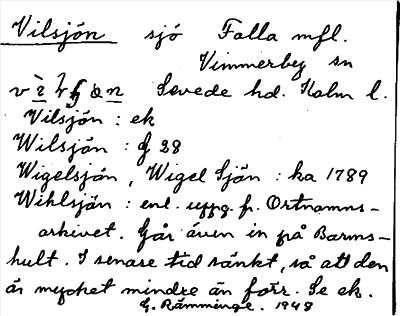 Vilsjön sjö Falla mfl.
Vimmerby sn
Sevede hd. Kalm l.
Vilsjön : ek
Wilsjön : G 28
Wigelsjön, Wigel Sjön : ka 1789
Wihlsjön : enl. uppg. fr. Ortnamns-
arkivet. Går även in på Barms-
hult. I senare tid sänkt, så att den
är mycket mindre än förr. Se ek.
G. Rämminge. 1948